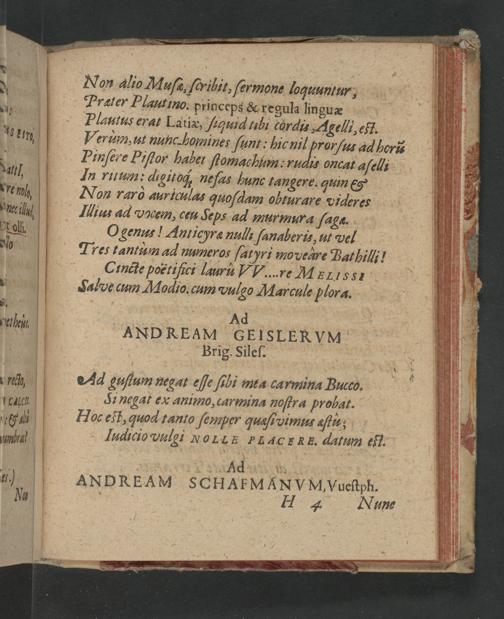 Non alio Musæ, scribit, sermone loquuntur,
Præter Plautino. princeps & regula linguæ
Plautus erat Latiæ, siquid tibi cordis, Agelli, est.
Verùm, ut nunc homines sunt: hic nil prorsus ad horũ
Pinsere Pistor habet stomachum: rudis oncat aselli
In ritum: digitoq́; nefas hunc tangere. quin &
Non rarò auriculas quosdam obturare videres
Illius ad vocem, ceu Seps ad murmura sagæ.
O genus! Anticyræ nulli sanaberis, ut vel
Tres tantùm ad numeros satyri moveâre Bathilli!
Cincte poëtifici laurû VV....re MELISSI
Salve cum Modio. cum vulgo Marcule plora.
Ad
ANDREAM GEISLERVM
Brig. Siles.
Ad gustum negat esse sibi mea carmina Bucco.
Si negat ex animo, carmina nostra probat.
Hoc est, quod tanto semper quæsivimus astu;
Iudicio vulgi NOLLE PLACERE. datum est.
Ad
ANDREAM SCHAFMANVM, Vuestph.
H 4 Nunc